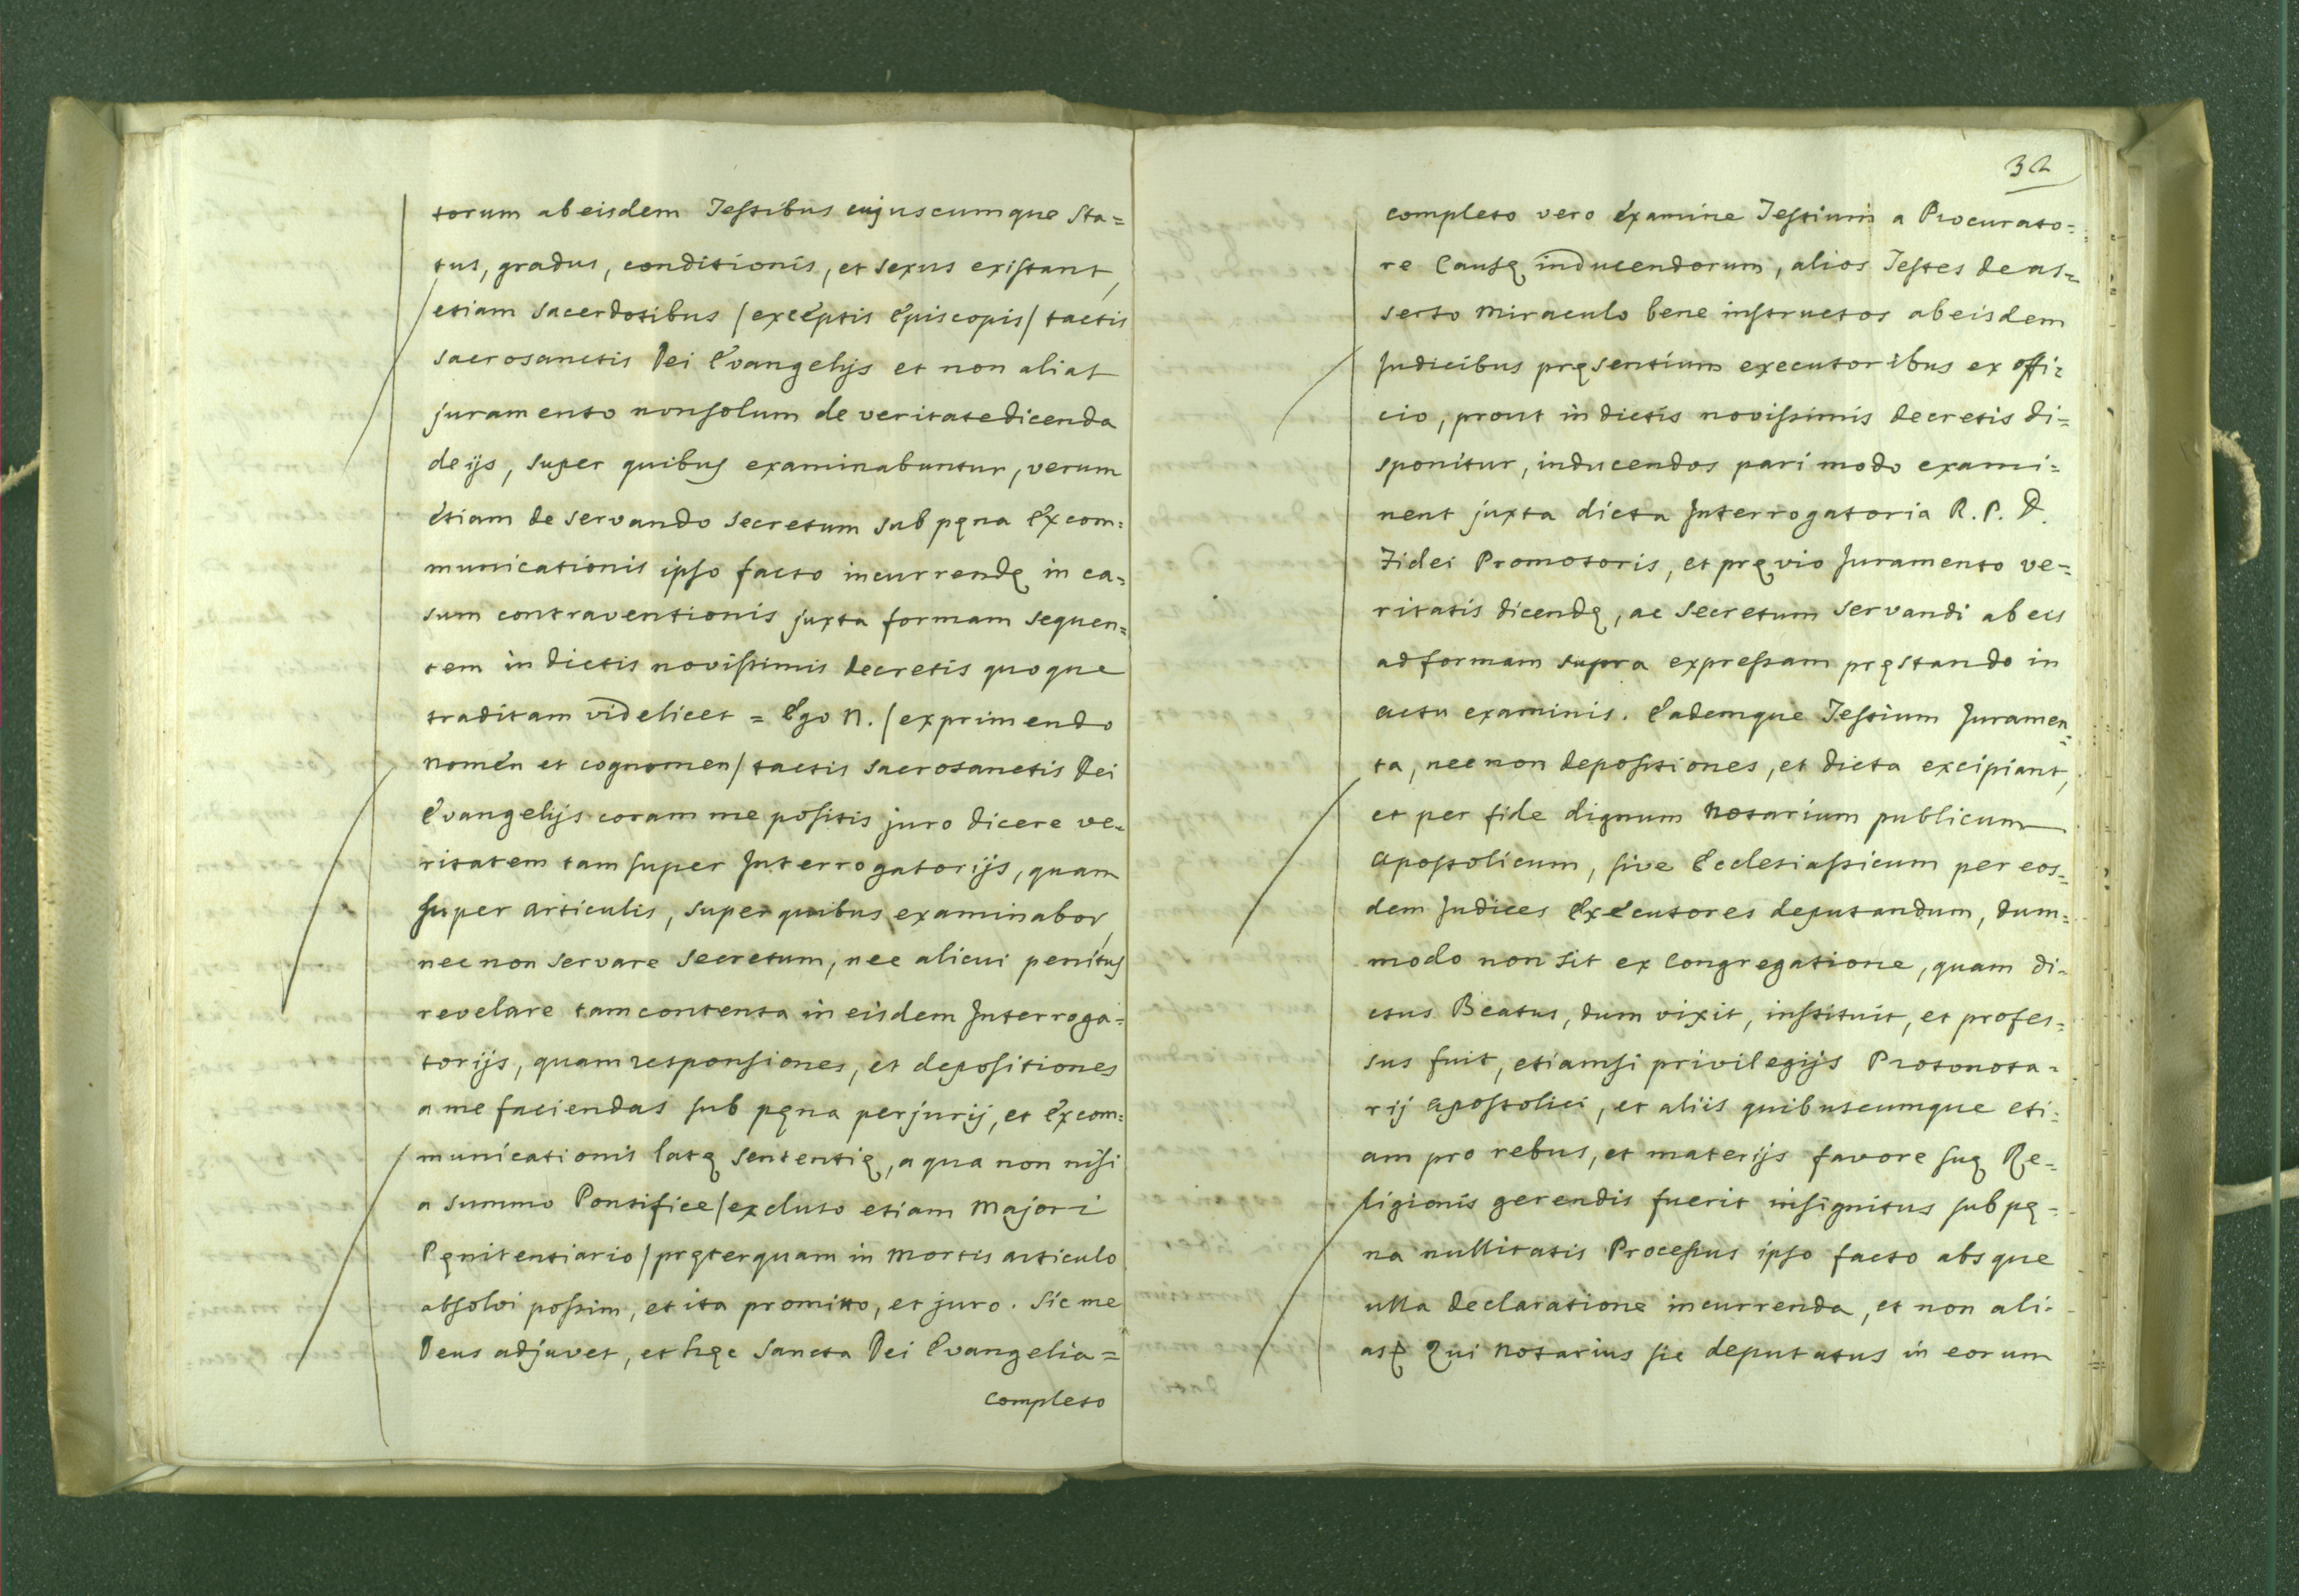 torum ab eisdem Testibus cujuscumque Sta=
tus, gradus, conditionis, et sexus existant,
etiam Sacerdotibus /exceptis Episcopis/ tactis
sacrosanctis Dei Evangelijs et non aliat
juramento non solum de veritate dicenda
de ijs, super quibus examinabuntur, verum
etiam de servando secretum sub pęna Excom=
municationis ipso facto incurrendę in ca=
sum contraventionis juxta formam sequen=
tem in dictis novissimis decretis quoque
traditam videlicet = Ego N. /exprimendo
nomen et cognomen/ tactis sacrosanctis Dei
Evangelijs coram me positis juro dicere ve=
ritatem tam super Interrogatorijs, quam
super articulis, super quibus examinabor,
nec non servare secretum, nec alicui penitus
revelare tam contenta in eisdem Interroga=
torijs, quam responsiones, et depositiones
a me faciendas sub pęna perjurij, et Excom=
municationis latę sententię, a qua non nisi
a Summo Pontifice /excluso etiam Majori
Pęnitentiario/ pręterquam in mortis articulo
absolvi possim, et ita promitto, et juro. Sic me
Deus adjuvet, et hęc Sancta Dei Evangelia =
completo
32
completo vero examine Testium a Procurato=
re Causę inducendorum, alios Testes de as=
serto miraculo bene instructos ab eisdem
Judicibus pręsentium executoribus ex offi=
cio, prout in dictis novissimis decretis di=
sponitur, inducendos pari modo exami=
nent juxta dicta Interrogatoria R. P. D.
Fidei Promotoris, et pręvio Juramento ve=
ritatis dicendę, ac secretum servandi ab eis
ad formam supra expressam pręstando in
actu examinis. Eademque Testium Juramen=
ta, nec non depositiones, et dicta excipiant,
et per fide dignum Notarium publicum
Apostolicum, sive Ecclesiasticum per eos=
dem Judices Executores deputandum, dum=
modo non sit ex Congregatione, quam di=
ctus Beatus, dum vixit, instituit, et profes=
sus fuit, etiamsi privilegijs Protonota=
rij Apostolici, et aliis quibuscumque eti=
am pro rebus, et materijs favore suę Re=
ligionis gerendis fuerit insignitus sub pę=
na nullitatis Processus ipso facto absque
ulla declaratione incurrenda, et non ali=
as Qui Notarius sic deputatus in eorum